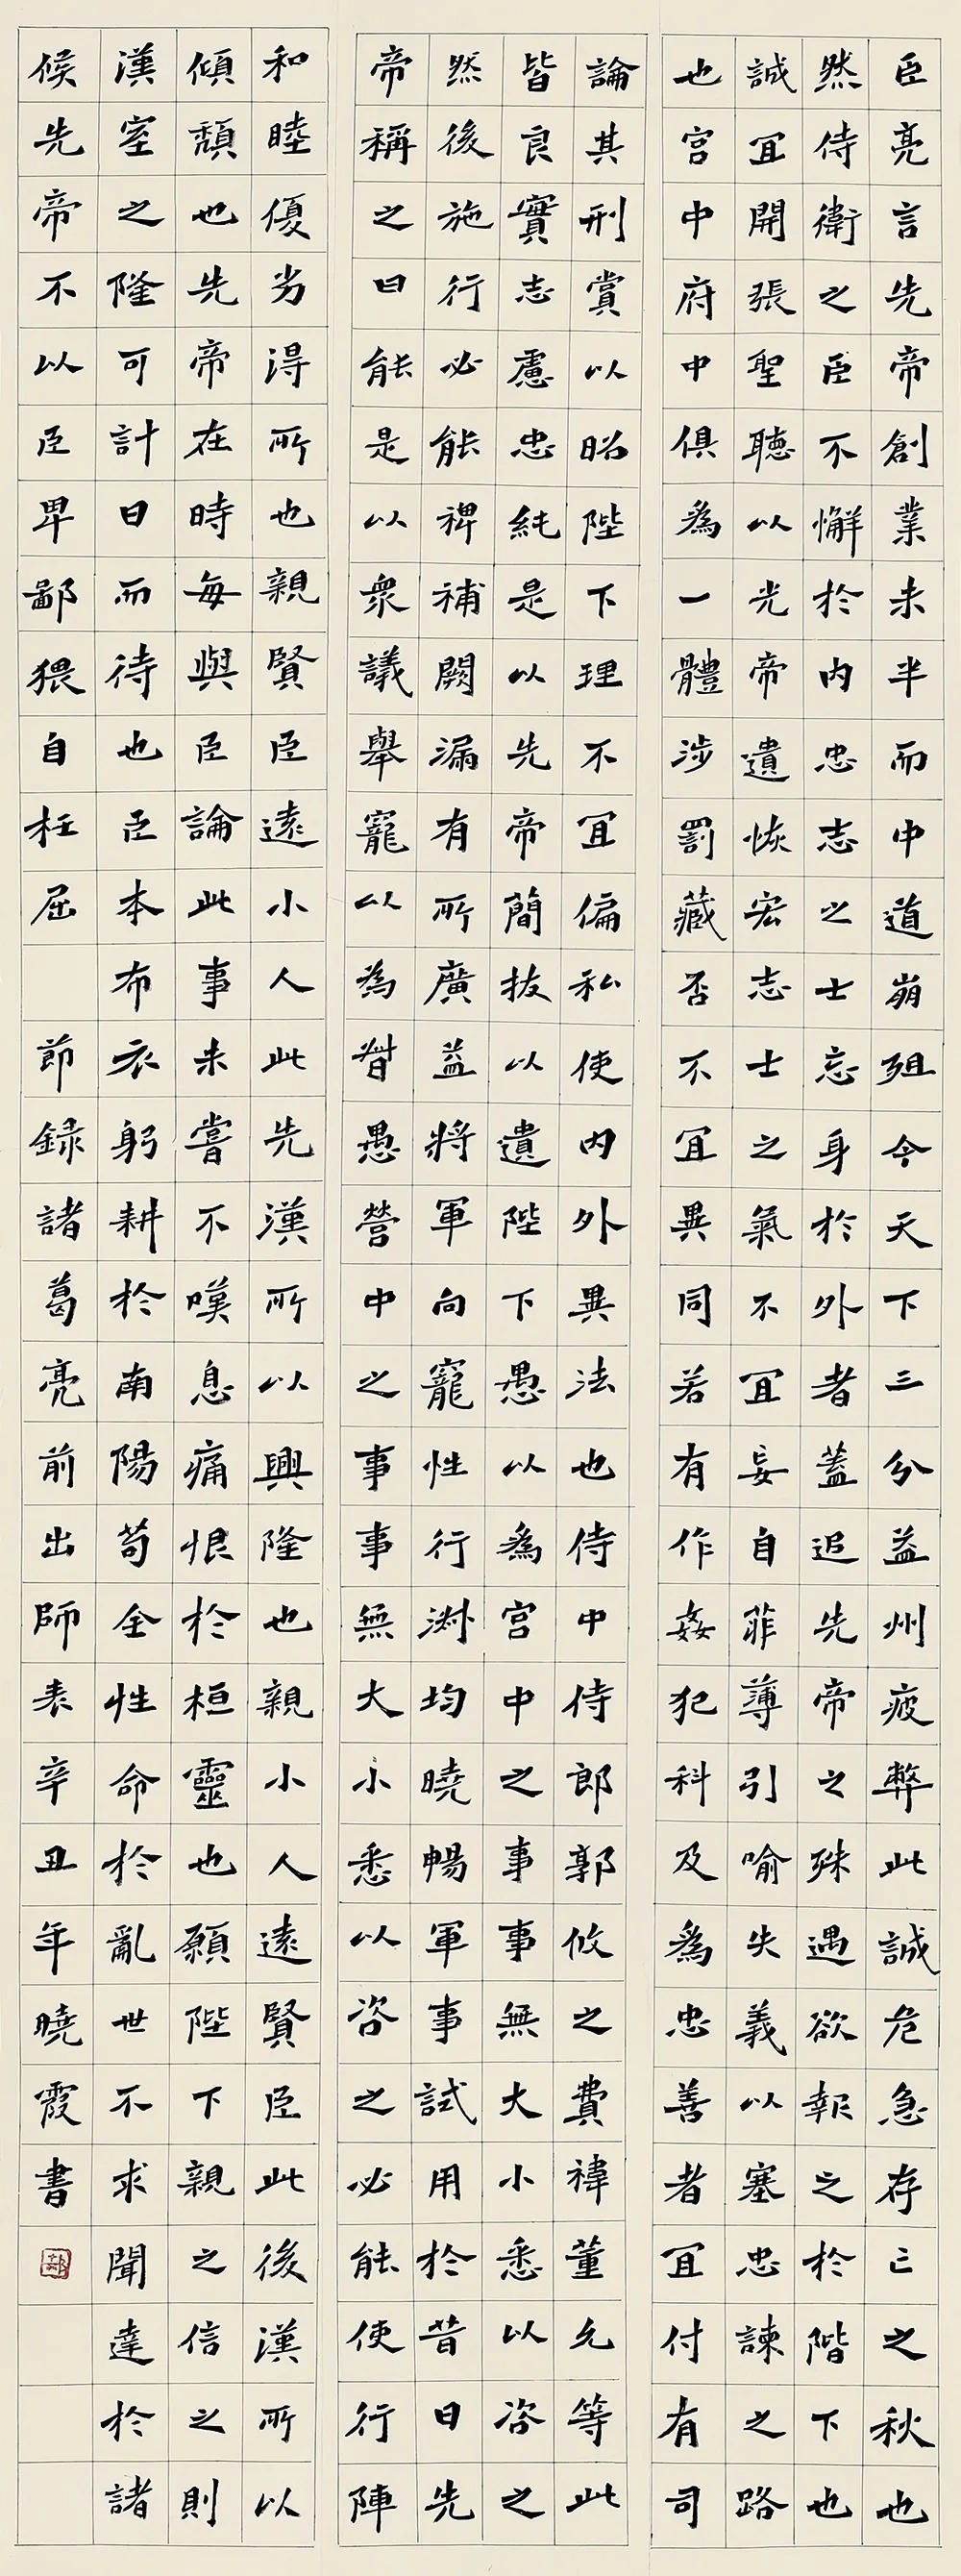 臣亮言先帝創業未半而中道崩殂今天下三分益州疲弊此誠危急存亡之秋也
然侍衛之臣不懈於內忠志之士忘身於外者蓋追先帝之殊遇欲報之於階下也
誠宜開張聖聽以光帝遺恢宏志士之氣不宜妄自菲薄引喻失義以塞忠諫之路
也宮中府中俱為一體涉罰藏否不宜異同若有作姦犯科及為忠善者宜付有司
論其刑賞以昭陛下理不宜偏私使內外異法也侍中侍郎郭攸之費禕董允等此
皆良實志慮忠純是以先帝簡拔以遺陛下愚以為宮中之事事無大小悉以咨之
然後施行必能裨補闕漏有所廣益將軍向寵性行淑均曉暢軍事試用於昔日先
帝稱之曰能是以衆議舉寵以為督愚營中之事事無大小悉以咨之必能使行陣
和睦優劣得所也親賢臣遠小人此先漢所以興隆也親小人遠賢臣此後漢所以
傾頹也先帝在時每與臣論此事未嘗不嘆息痛恨於桓靈也願陛下親之信之則
漢室之隆可計日而待也臣本布衣躬耕於南陽苟全性命於亂世不求聞達於諸
候先帝不以臣卑鄙猥自枉屈 節録諸葛亮前出師表辛丑年曉霞書